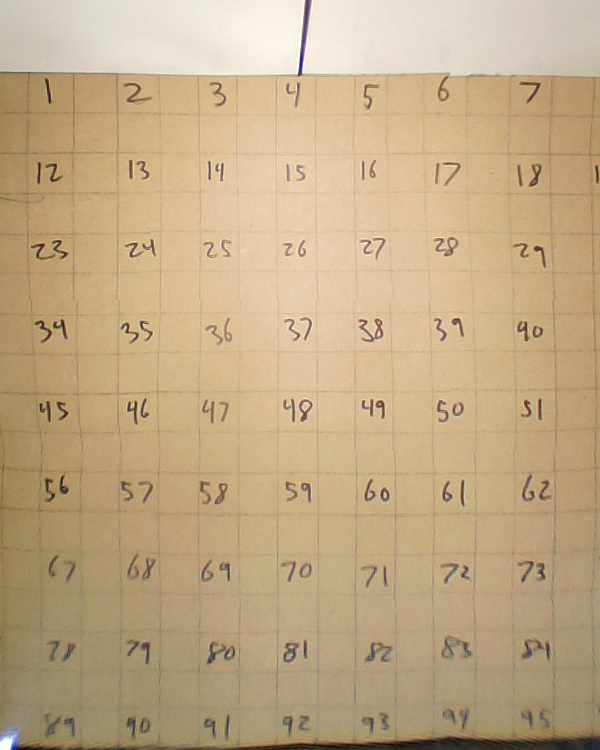 1 2 3 4 5 6 7
12 13 14 15 16 17 18 1
23 24 25 26 27 28 29
34 35 36 37 38 39 40
45 46 47 48 49 50 51
56 57 58 59 60 61 62
67 68 69 70 71 72 73
78 79 80 81 82 83 84
89 90 91 92 93 94 95